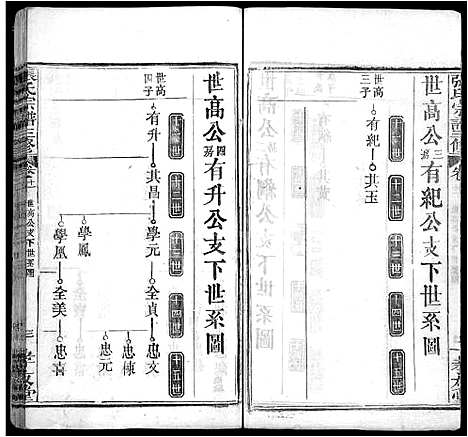 世高公三房有紀公支下世系圖
十一世
十二世
十三世
十四世
十五世
世高
三子
有紀
其玉
張氏宗譜三修
世高公四房有升公支下世系圖
十一世
十二世
十三世
十四世
十五世
世高
四子
有升
其昌
學元
全貞
忠文
忠傳
忠元
學鳳
學凰
全美
忠喜
張氏宗譜三修
世高公支下世系圖
孝友堂